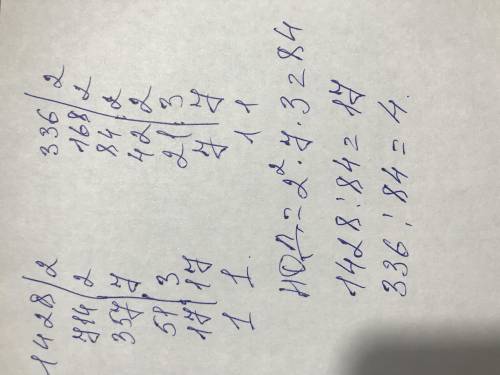 1428 | 2
714 | 2
357 | 7
51 | 3
17 | 17
1 1
336 | 2
168 | 2
84 | 2
42 | 2
21 | 3
7 | 7
1 1
НОД = 2² · 7 · 3 = 84
1428 : 84 = 17
336 : 84 = 4.